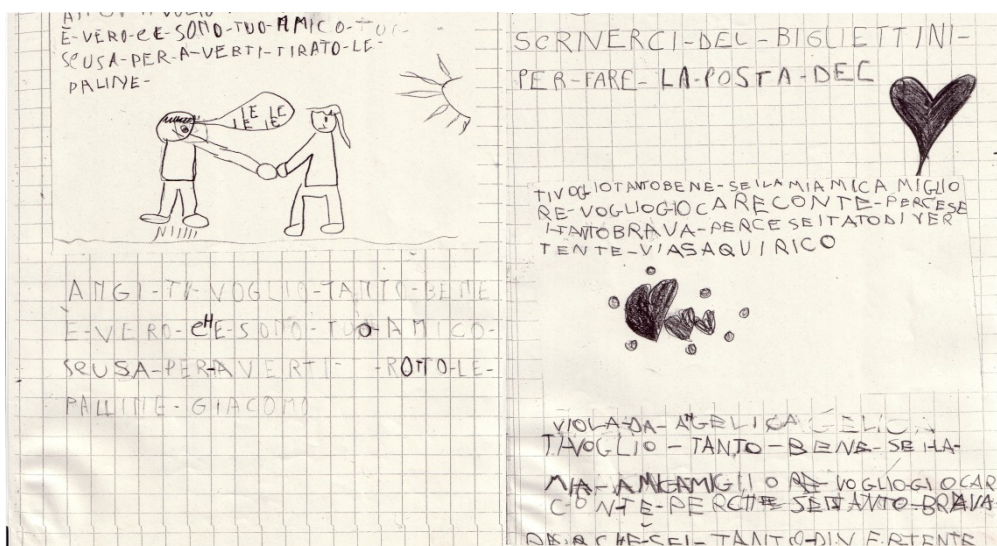 È-VERO-CE-SONO-TUO-AMICO-
SCUSA-PER-A-VERTI-TIRATO-LE-
PALINE-
LE LE
LE LE
ANGI-TI-VOGLIO-TANTO-BENE
È-VERO-CHE-SONO-TUO-AMICO-
SCUSA-PER-AVERTI-ROTTO-LE-
PALLINE-GIACOMO
SCRIVERCI-DEL-BIGLIETTINI-
PER-FARE-LA-POSTA-DEL
TIVOGLIOTANTOBENE-SEILAMIAMICA MIGLIO
RE-VOGLIOGIOCARECONTE-PERCESE
ITANTOBRAVA-PERCESEITATODIVER
TENTE-VIASAQUIRICO
VIOLA-DA-ANGELICA GELICA
TIVOGLIO-TANTO-BENE-SEI-LA-
MIA-AMICAMIGLIORE-VOGLIOGIOCAR
CONTE-PERCHE SEITANTO-BRAVA
PERCHE-SEI-TANTO-DIVERTENTE